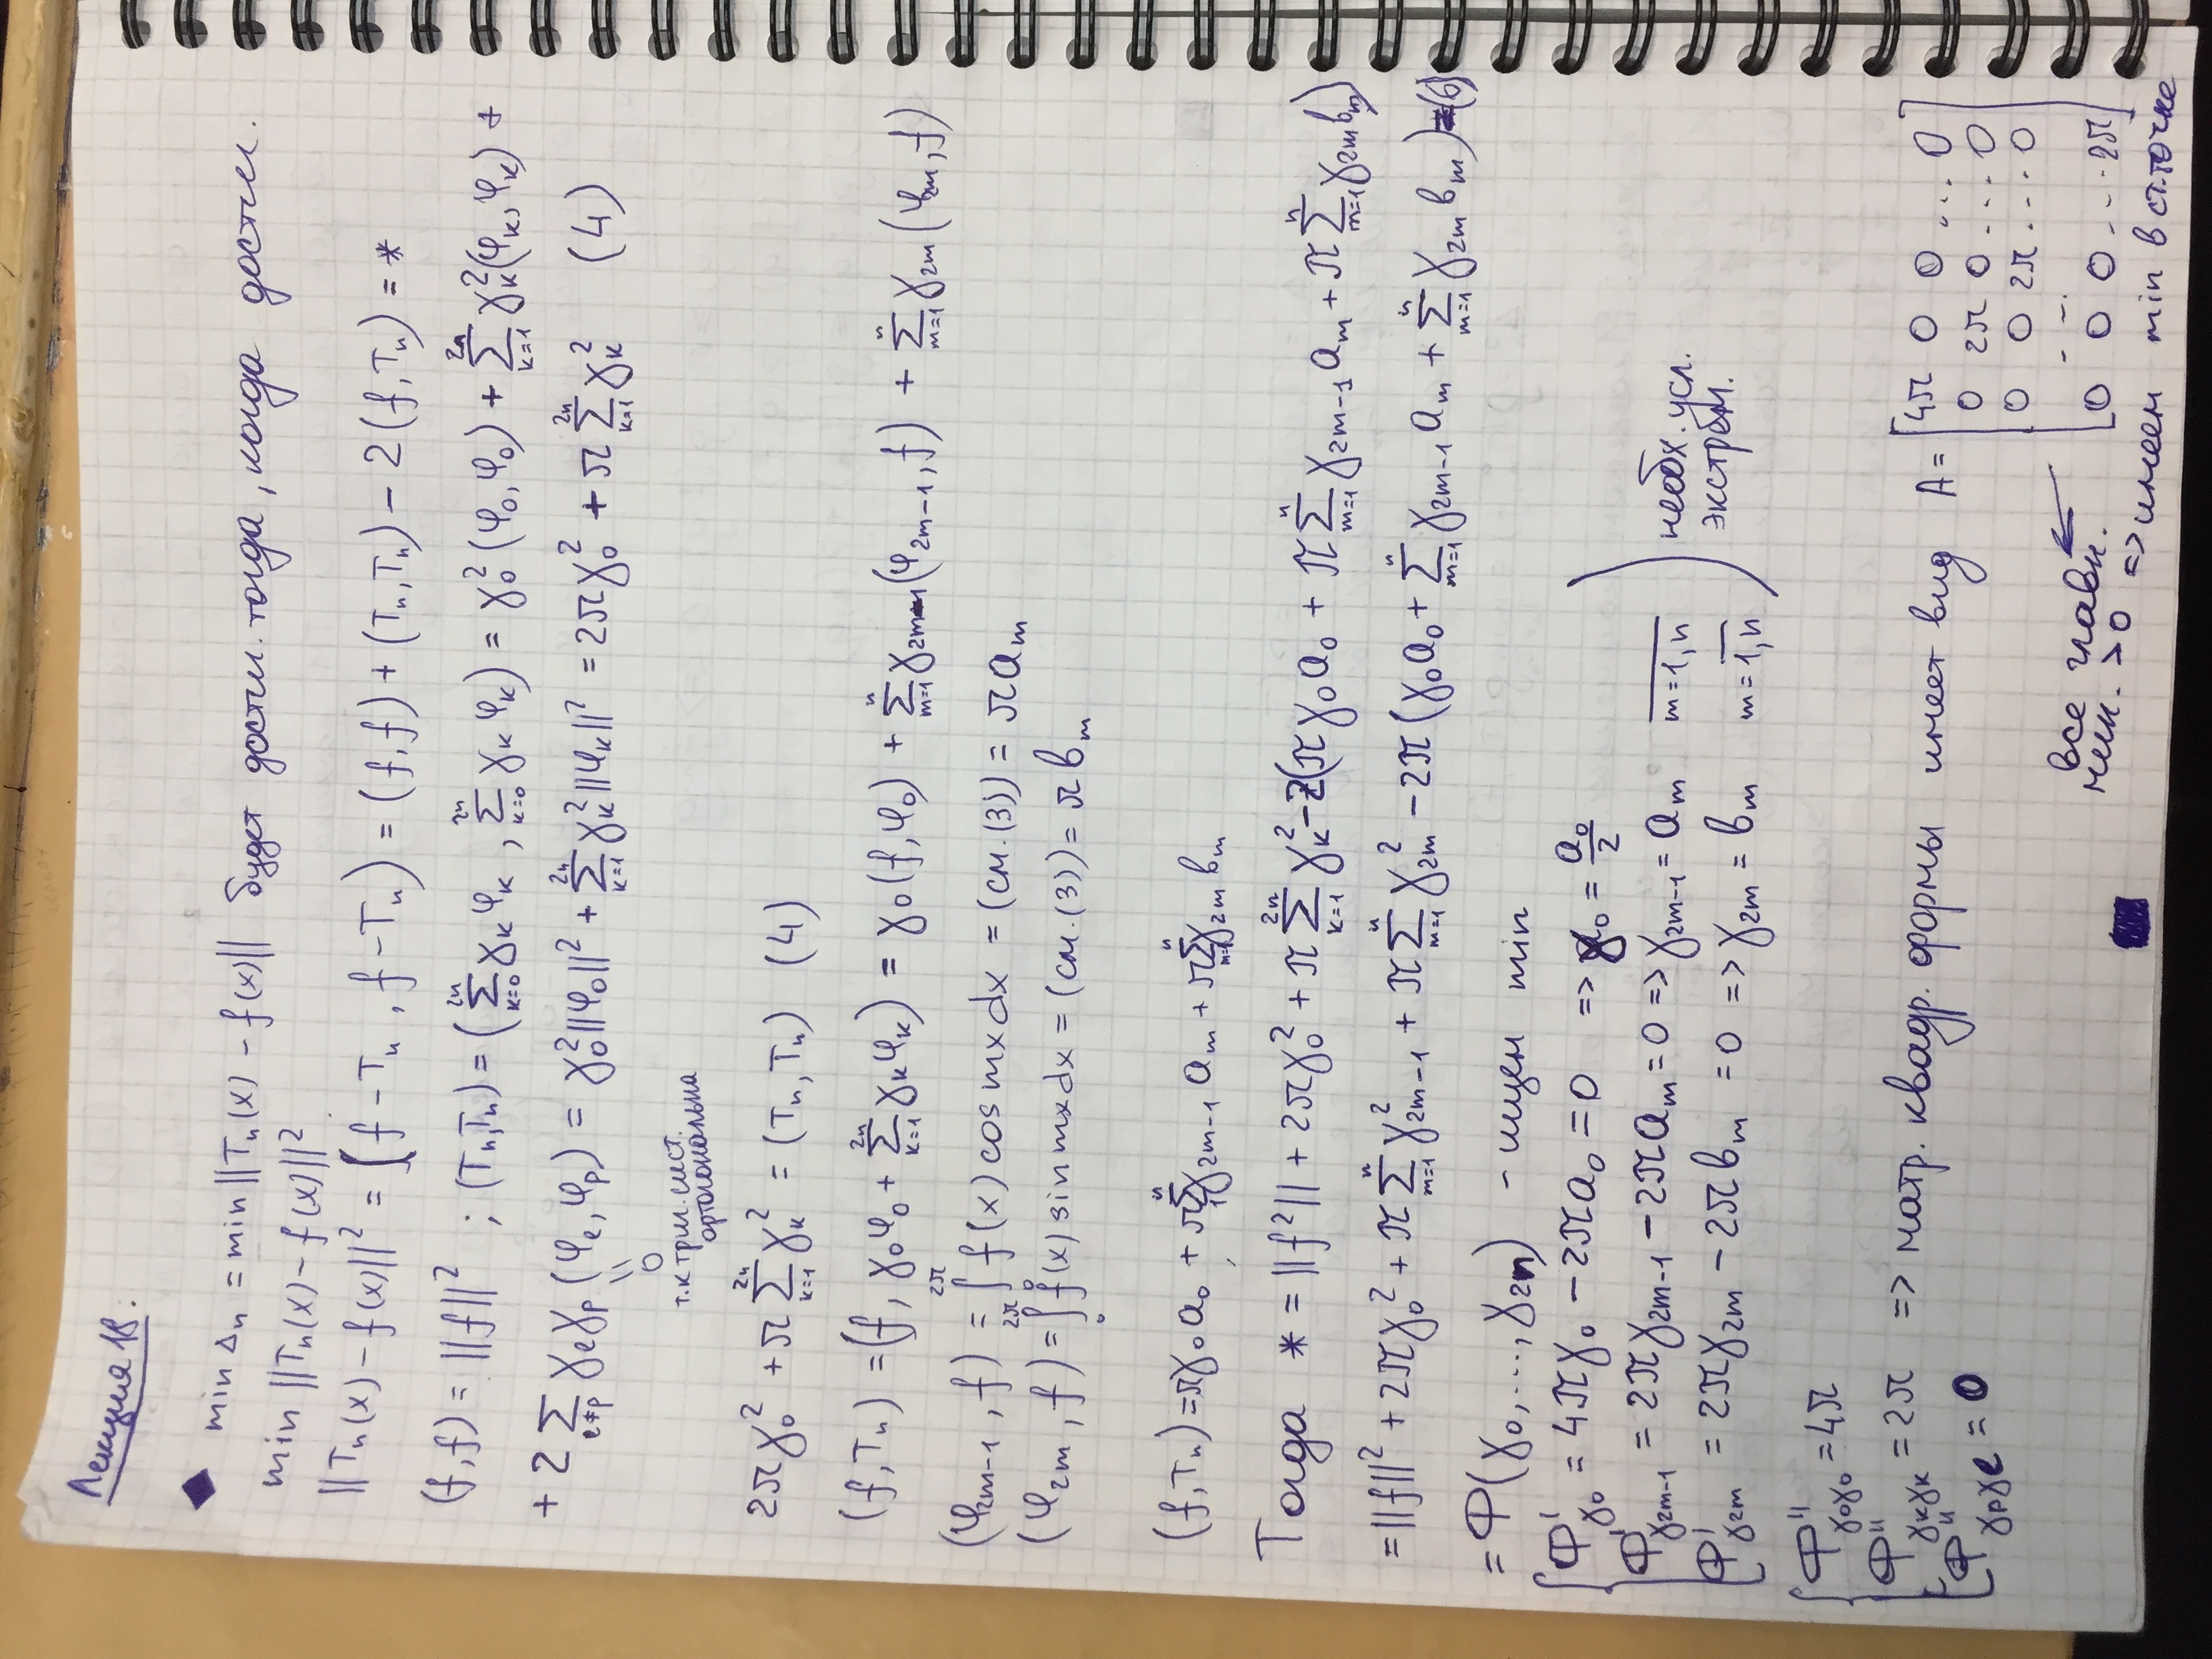 Лекция 18.
◆ min Δn = min ||Tn(x) − f(x)|| будет достиг. тогда, когда достиг.
min ||Tn(x) − f(x)||²
||Tn(x) − f(x)||² = (f − Tn, f − Tn) = (f, f) + (Tn, Tn) − 2(f, Tn) = *
(f, f) = ||f||² ; (Tn, Tn) = (∑_{k=0}^{2n} γk φk , ∑_{k=0}^{2n} γk φk) = γ0² (φ0, φ0) + ∑_{k=1}^{2n} γk² (φk, φk) +
+ 2 ∑_{e≠p} γe γp (φe, φp) = γ0² ||φ0||² + ∑_{k=1}^{2n} γk² ||φk||² = 2πγ0² + π ∑_{k=1}^{2n} γk² (4)
||
0
т.к триг. сист.
ортогональна
2πγ0² + π ∑_{k=1}^{2n} γk² = (Tn, Tn) (4)
(f, Tn) = (f, γ0φ0 + ∑_{k=1}^{2n} γk φk) = γ0 (f, φ0) + ∑_{m=1}^{n} γ2m-1 (φ2m-1, f) + ∑_{m=1}^{n} γ2m (φ2m, f)
(φ2m-1, f) = ∫_0^{2π} f(x) cos mx dx = (см. (3)) = π am
(φ2m, f) = ∫_0^{2π} f(x) sin mx dx = (см. (3)) = π bm
(f, Tn) = πγ0 a0 + π ∑_1^n γ2m-1 am + π ∑_{m=1}^n γ2m bm
Тогда * = ||f²|| + 2πγ0² + π ∑_{k=1}^{2n} γk² − 2(πγ0 a0 + π ∑_{m=1}^{n} γ2m-1 am + π ∑_{m=1}^{n} γ2m bm)
= ||f||² + 2πγ0² + π ∑_{m=1}^{n} γ²2m-1 + π ∑_{m=1}^{n} γ²2m − 2π (γ0 a0 + ∑_{m=1}^{n} γ2m-1 am + ∑_{m=1}^{n} γ2m bm) = (6)
= Ф(γ0, ..., γ2n) - ищем min
Ф'γ0 = 4πγ0 − 2πa0 = 0 => γ0 = a0/2
Ф'γ2m-1 = 2πγ2m-1 − 2πam = 0 => γ2m-1 = am m = 1,n
Ф'γ2m = 2πγ2m − 2πbm = 0 => γ2m = bm m = 1,n
необх. усл.
экстрем.
Ф''γ0γ0 = 4π
Ф''γkγk = 2π => матр. квадр. формы имеет вид A =
Ф''γpγe = 0
4π 0 0 ... 0
0 2π 0 ... 0
0 0 2π ... 0
- -
0 0 0 ... 2π
все главн.
мин. > 0 => имеем min в ст. точке